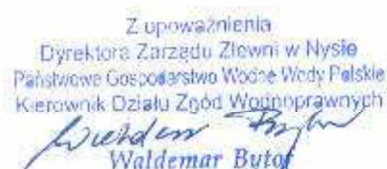 Z upoważnienia
Dyrektora Zarządu Zlewni w Nysie
Państwowe Gospodarstwo Wodne Wody Polskie
Kierownik Działu Zgód Wodnoprawnych
Waldemar Butor